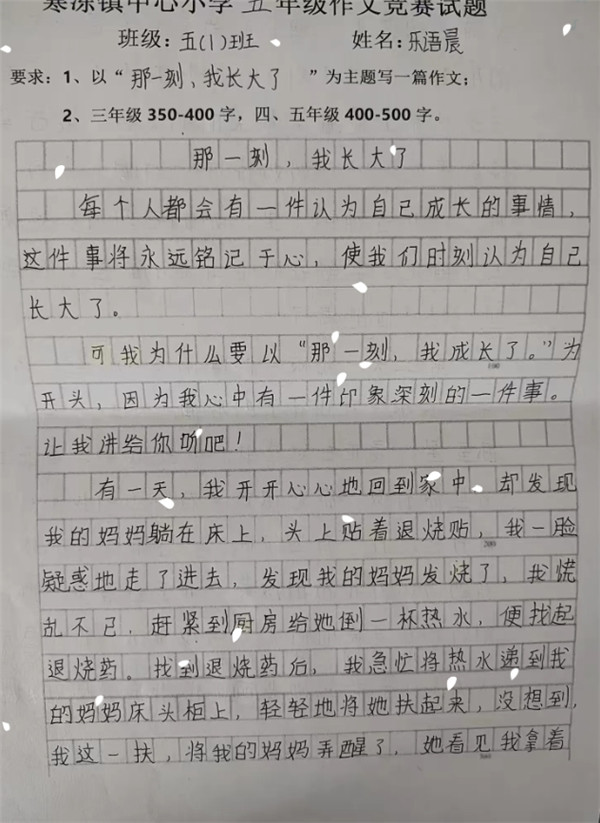 寒冻镇中心小学 五年级作文竞赛试题
班级：五(1)班 姓名：乐语晨
要求：1、以“那一刻，我长大了 ”为主题写一篇作文；
2、三年级 350-400 字，四、五年级 400-500 字。
那一刻，我长大了
每个人都会有一件认为自己成长的事情，
这件事将永远铭记于心，使我们时刻认为自己
长大了。
可我为什么要以“那一刻，我成长了。”为
开头，因为我心中有一件印象深刻的一件事。
让我讲给你听吧！
有一天，我开开心心地回到家中，却发现
我的妈妈躺在床上，头上贴着退烧贴，我一脸
疑惑地走了进去，发现我的妈妈发烧了，我慌
乱不已，赶紧到厨房给她倒一杯热水，便找起
退烧药。找到退烧药后，我急忙将热水递到我
的妈妈床头柜上，轻轻地将她扶起来，没想到，
我这一扶，将我的妈妈弄醒了，她看见我拿着